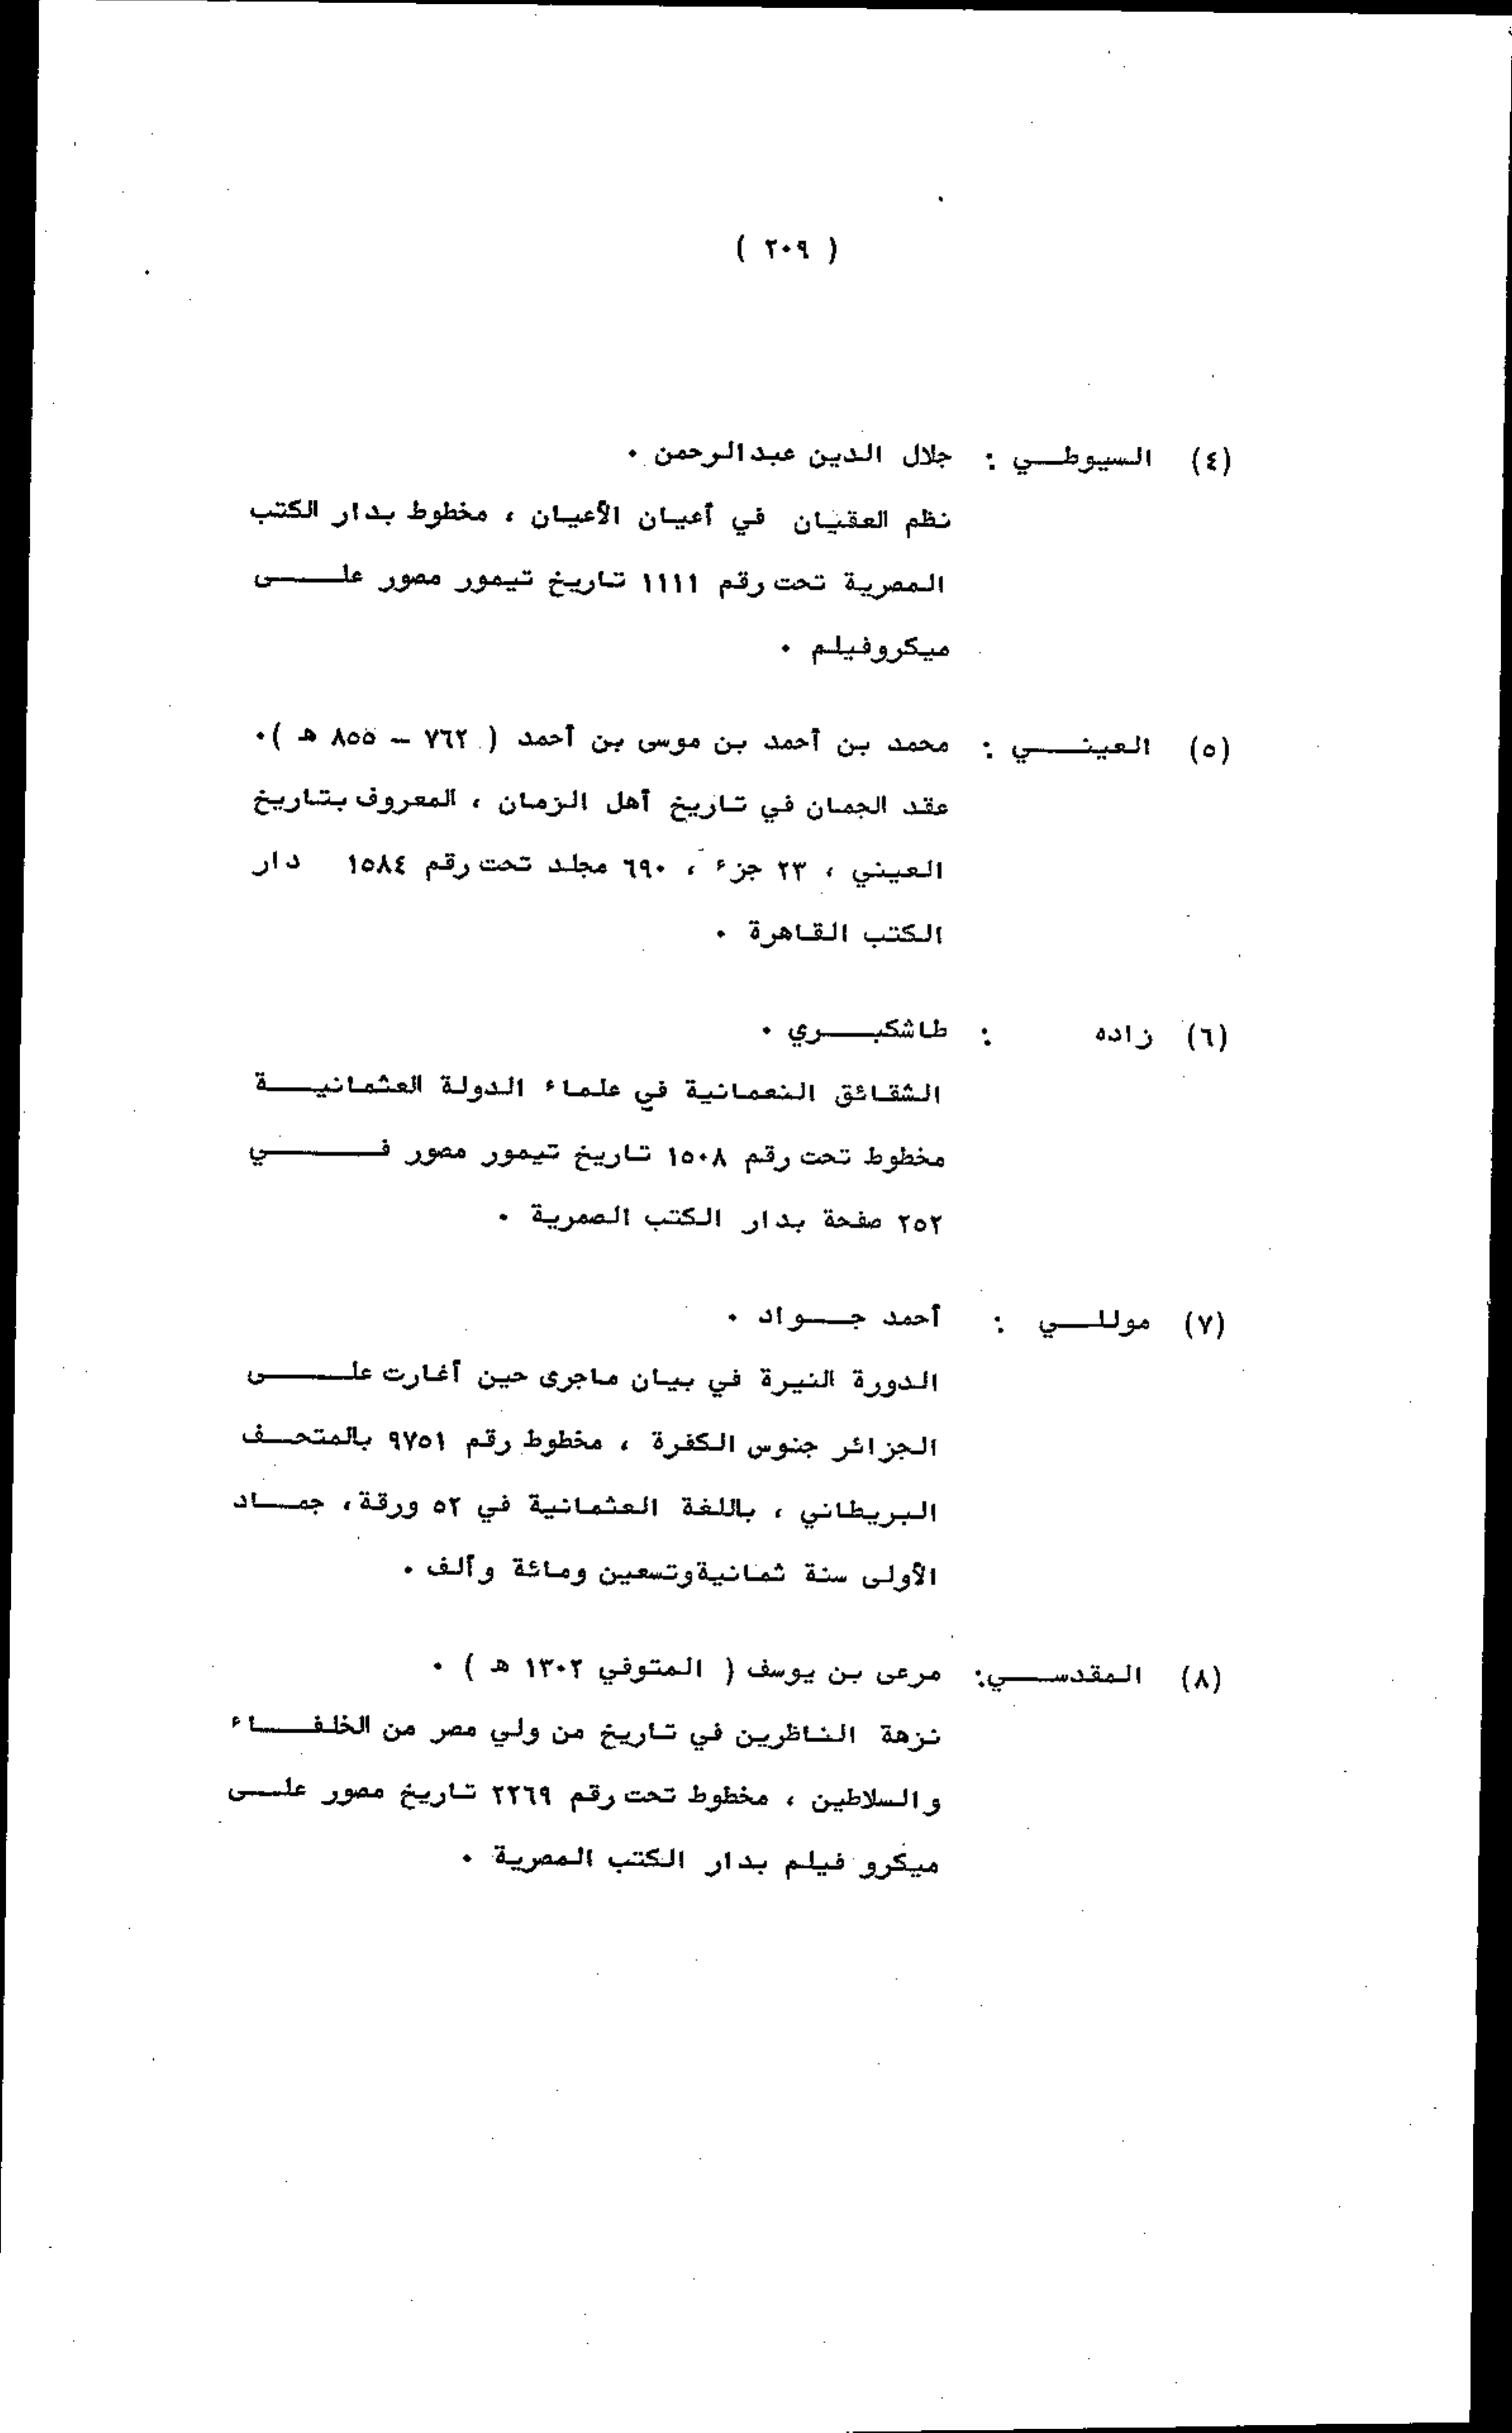 ( ٢٠٩ )
(٤) السيوطي : جلال الدين عبدالرحمن .
نظم العقيان في أعيان الأعيان ، مخطوط بدار الكتب
المصرية تحت رقم ١١١١ تاريخ تيمور مصور على
ميكروفيلم .
(٥) العيني : محمد بن أحمد بن موسى بن أحمد ( ٧٦٢ - ٨٥٥ ه ) .
عقد الجمان في تاريخ أهل الزمان ، المعروف بتاريخ
العيني ، ٢٣ جزء ، ٦٩٠ مجلد تحت رقم ١٥٨٤ دار
الكتب القاهرة .
(٦) زاده : طاشكبري .
الشقائق النعمانية في علماء الدولة العثمانية
مخطوط تحت رقم ١٥٠٨ تاريخ تيمور مصور في
٢٥٢ صفحة بدار الكتب الصمرية .
(٧) موللي : أحمد جواد .
الدورة النيرة في بيان ماجرى حين أغارت على
الجزائر جنوس الكفرة ، مخطوط رقم ٩٧٥١ بالمتحف
البريطاني ، باللغة العثمانية في ٥٢ ورقة ، جماد
الأولى سنة ثمانية وتسعين ومائة وألف .
(٨) المقدسي : مرعى بن يوسف ( المتوفي ١٣٠٢ ه ) .
نزهة الناظرين في تاريخ من ولي مصر من الخلفاء
والسلاطين ، مخطوط تحت رقم ٢٢٦٩ تاريخ مصور على
ميكرو فيلم بدار الكتب المصرية .